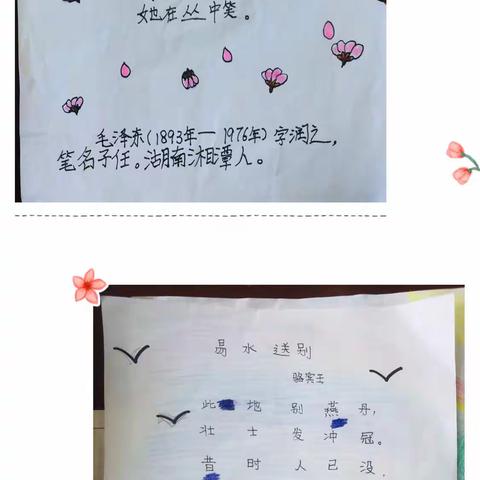 她在丛中笑。
毛泽东(1893年—1976年)字润之,
笔名子任。湖南湘潭人。
易水送别
骆宾王
此地别燕丹,
壮士发冲冠。
昔时人已没,